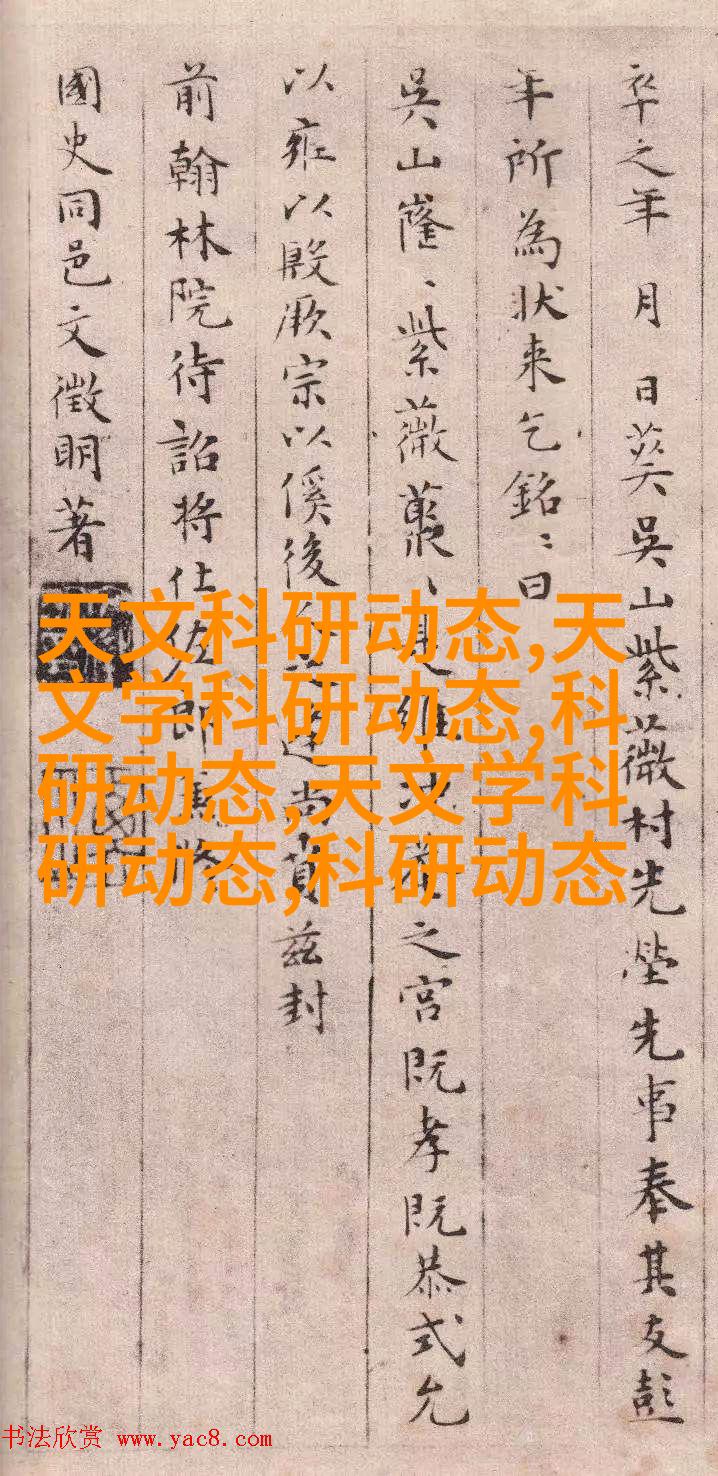 卒之年 月 日葵吳山紫薇村先塋先事奉其友彭
年所為狀来乞銘〻曰
吳山𡺽〻紫薇蓁〻是維沈 之宮既孝既恭式允
以雍以殷厥宗以傒後 逢尚賁茲封
前翰林院待詔將仕佐郎 脩
國史同邑文徵明著
天文科研动态,天
文学科研动态,科
研动态,天文学科
研动态,科研动态
书法欣赏 www.yac8.com